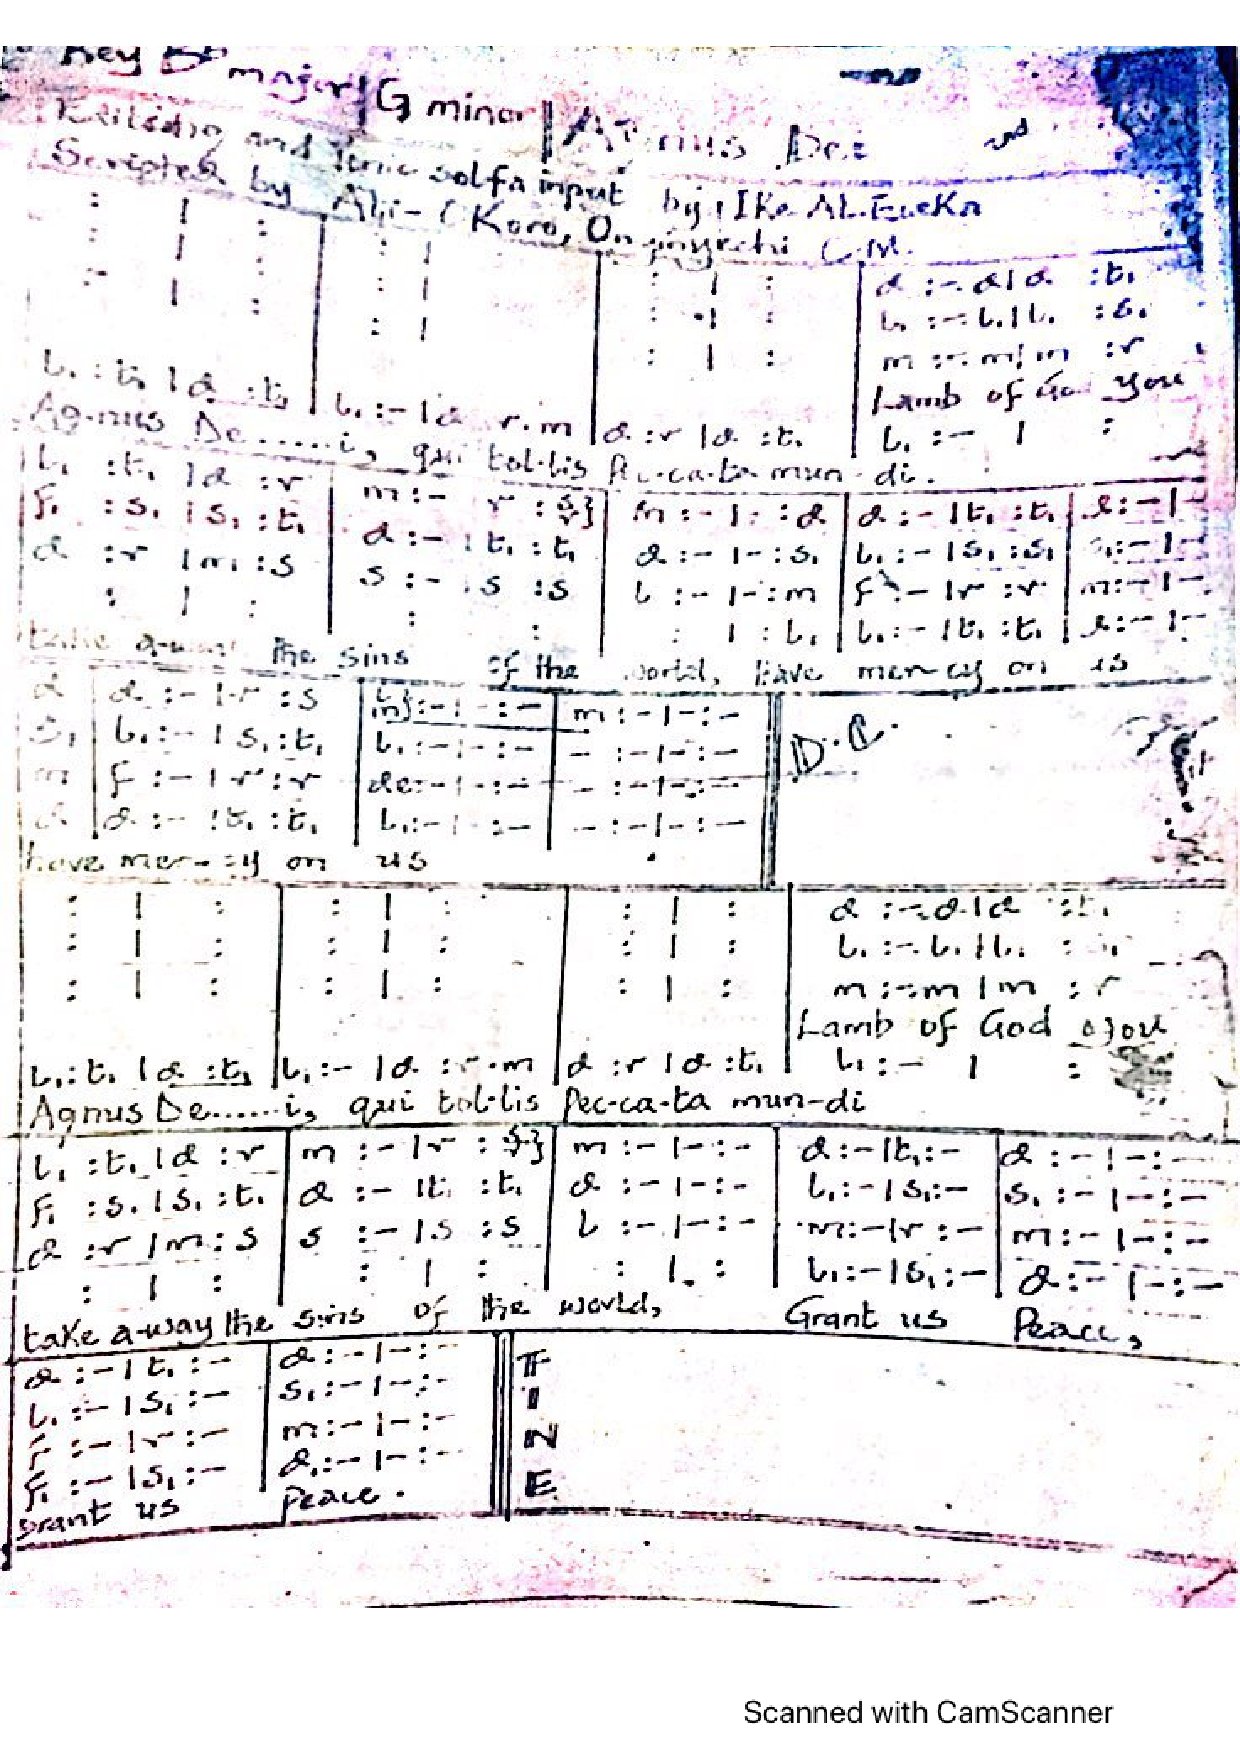 Key B♭ major/G minor Agnus Dei
and tonic solfa input by: Ike
Scripted by C.M.
: | : : | : | : d :-.d|d :t₁
: | : : | : | : l₁ :-.l₁|l₁ :s₁
: | : : | : | : m :-.m|m :r
Lamb of God you
l₁ :t₁ |d :t₁ l₁ :- |d r.m d :r |d :t₁ l₁ :- | :
Agnus De......i, qui tol-lis Pec-ca-ta mun-di.
l₁ :t₁ |d :r m :- r :s} m :-|- :d d :-|t₁ :t₁ d :-|-
f₁ :s₁ |s₁ :t₁ d :- |t₁ :t₁ d :-|- :s₁ l₁ :-|s₁ :s₁ s₁ :-|-
d :r |m :s s :- |s :s l :-|- :m f :-|r :r m :-|-
: | : : : : | :l₁ l₁ :-|t₁ :t₁ d :-|-
take a-way the sins of the world, have mer-cy on us
d d :-|r :s m} :-|- :- m :-|- :-
s₁ l₁ :-|s₁ :t₁ l₁ :-|- :- - :-|- :- D.C.
m f :-|r :r de :-|- :- - :-|- :-
d d :-|t₁ :t₁ l₁ :-|- :- - :-|- :-
have mer-cy on us
: | : : | : : | : d :-.d|d :t₁
: | : : | : : | : l₁ :-.l₁|l₁ :s₁
: | : : | : : | : m :-.m|m :r
Lamb of God you
l₁ :t₁ |d :t₁ l₁ :- |d :r.m d :r |d :t₁ l₁ :- | :
Agnus De......i, qui tol-lis Pec-ca-ta mun-di
l₁ :t₁ |d :r m :-|r :s} m :-|- :- d :-|t₁ :- d :-|- :-
f₁ :s₁ |s₁ :t₁ d :-|t₁ :t₁ d :-|- :- l₁ :-|s₁ :- s₁ :-|- :-
d :r |m :s s :-|s :s l :-|- :- m :-|r :- m :-|- :-
: | : : | : : | : l₁ :-|s₁ :- d :-|- :-
take a-way the sins of the world, Grant us Peace,
d :-|t₁ :- d :-|- :-
l₁ :-|s₁ :- s₁ :-|- :-
f :-|r :- m :-|- :-
f₁ :-|s₁ :- d₁ :-|- :-
grant us Peace.
FINE
Scanned with CamScanner